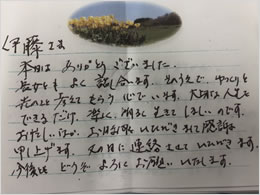 伊藤さま
本日は ありがとうございました。
長女とも よく 話し合います。そのうえで、ゆっくりと
先のことを考えてもらう心でいます。大切な人生を
できるだけ、楽しく、明るく 生きてほしいのです。
お忙しい中 お時間を いただきまして 感謝
申し上げます。又の日に 連絡させていただきます。
今後とも どうぞ よろしくお願いいたします。